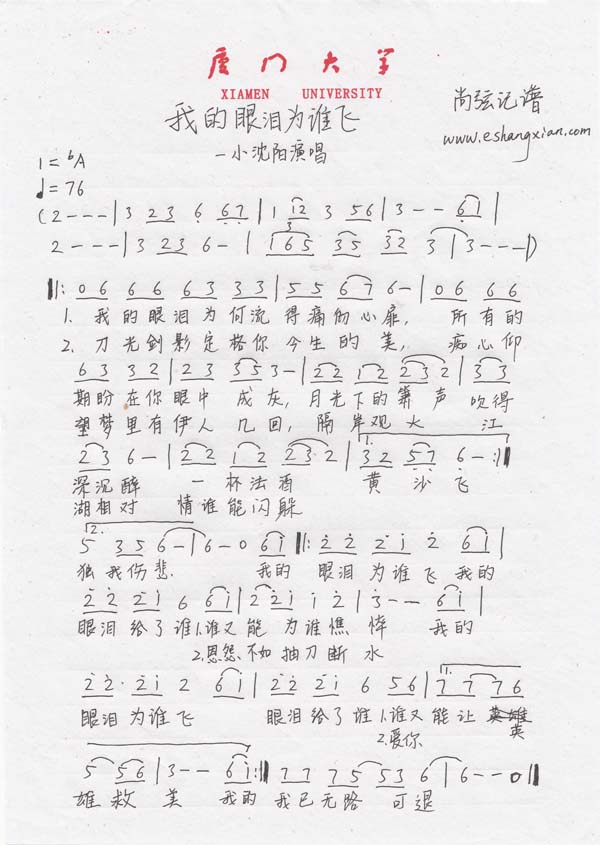 厦门大学
XIAMEN UNIVERSITY
尚弦记谱
我的眼泪为谁飞
www.eshangxian.com
—小沈阳演唱
1=ᵇA
♩=76
(2---|3 23 6 67|1 12 3 56|3--61|
3
2---|3 23 6-|165 35 32 3|3---|)
‖:06 66 63 33|55 676-|06 66
1. 我的眼泪为何流得痛彻心扉, 所有的
2. 刀光剑影定格你今生的美, 痴心仰
63 32|23 353-|22 12 232|33
期盼在你眼中成灰,月光下的箫声吹得
望梦里有伊人几回,隔岸观大江
23 6-|22 12 23·2|32 576-:‖
1.
深沉醉 一杯法酒 黄沙飞
湖相对 情谁能闪躲
2.
5 356-|6-0 61‖:22 21 2 61|
独我伤悲 我的眼泪为谁飞我的
22 21 6 61|221 12|3--61|
眼泪给了谁1.谁又能为谁憔悴 我的
2.恩怨不如抽刀断水
22· 21 2 61|22 21 6 56|77 76
1.
眼泪为谁飞 眼泪给了谁1.谁又能让英
2.爱你
5 56|3--61:‖77 75 53 6|6--0‖
雄救美 我的我已无路可退